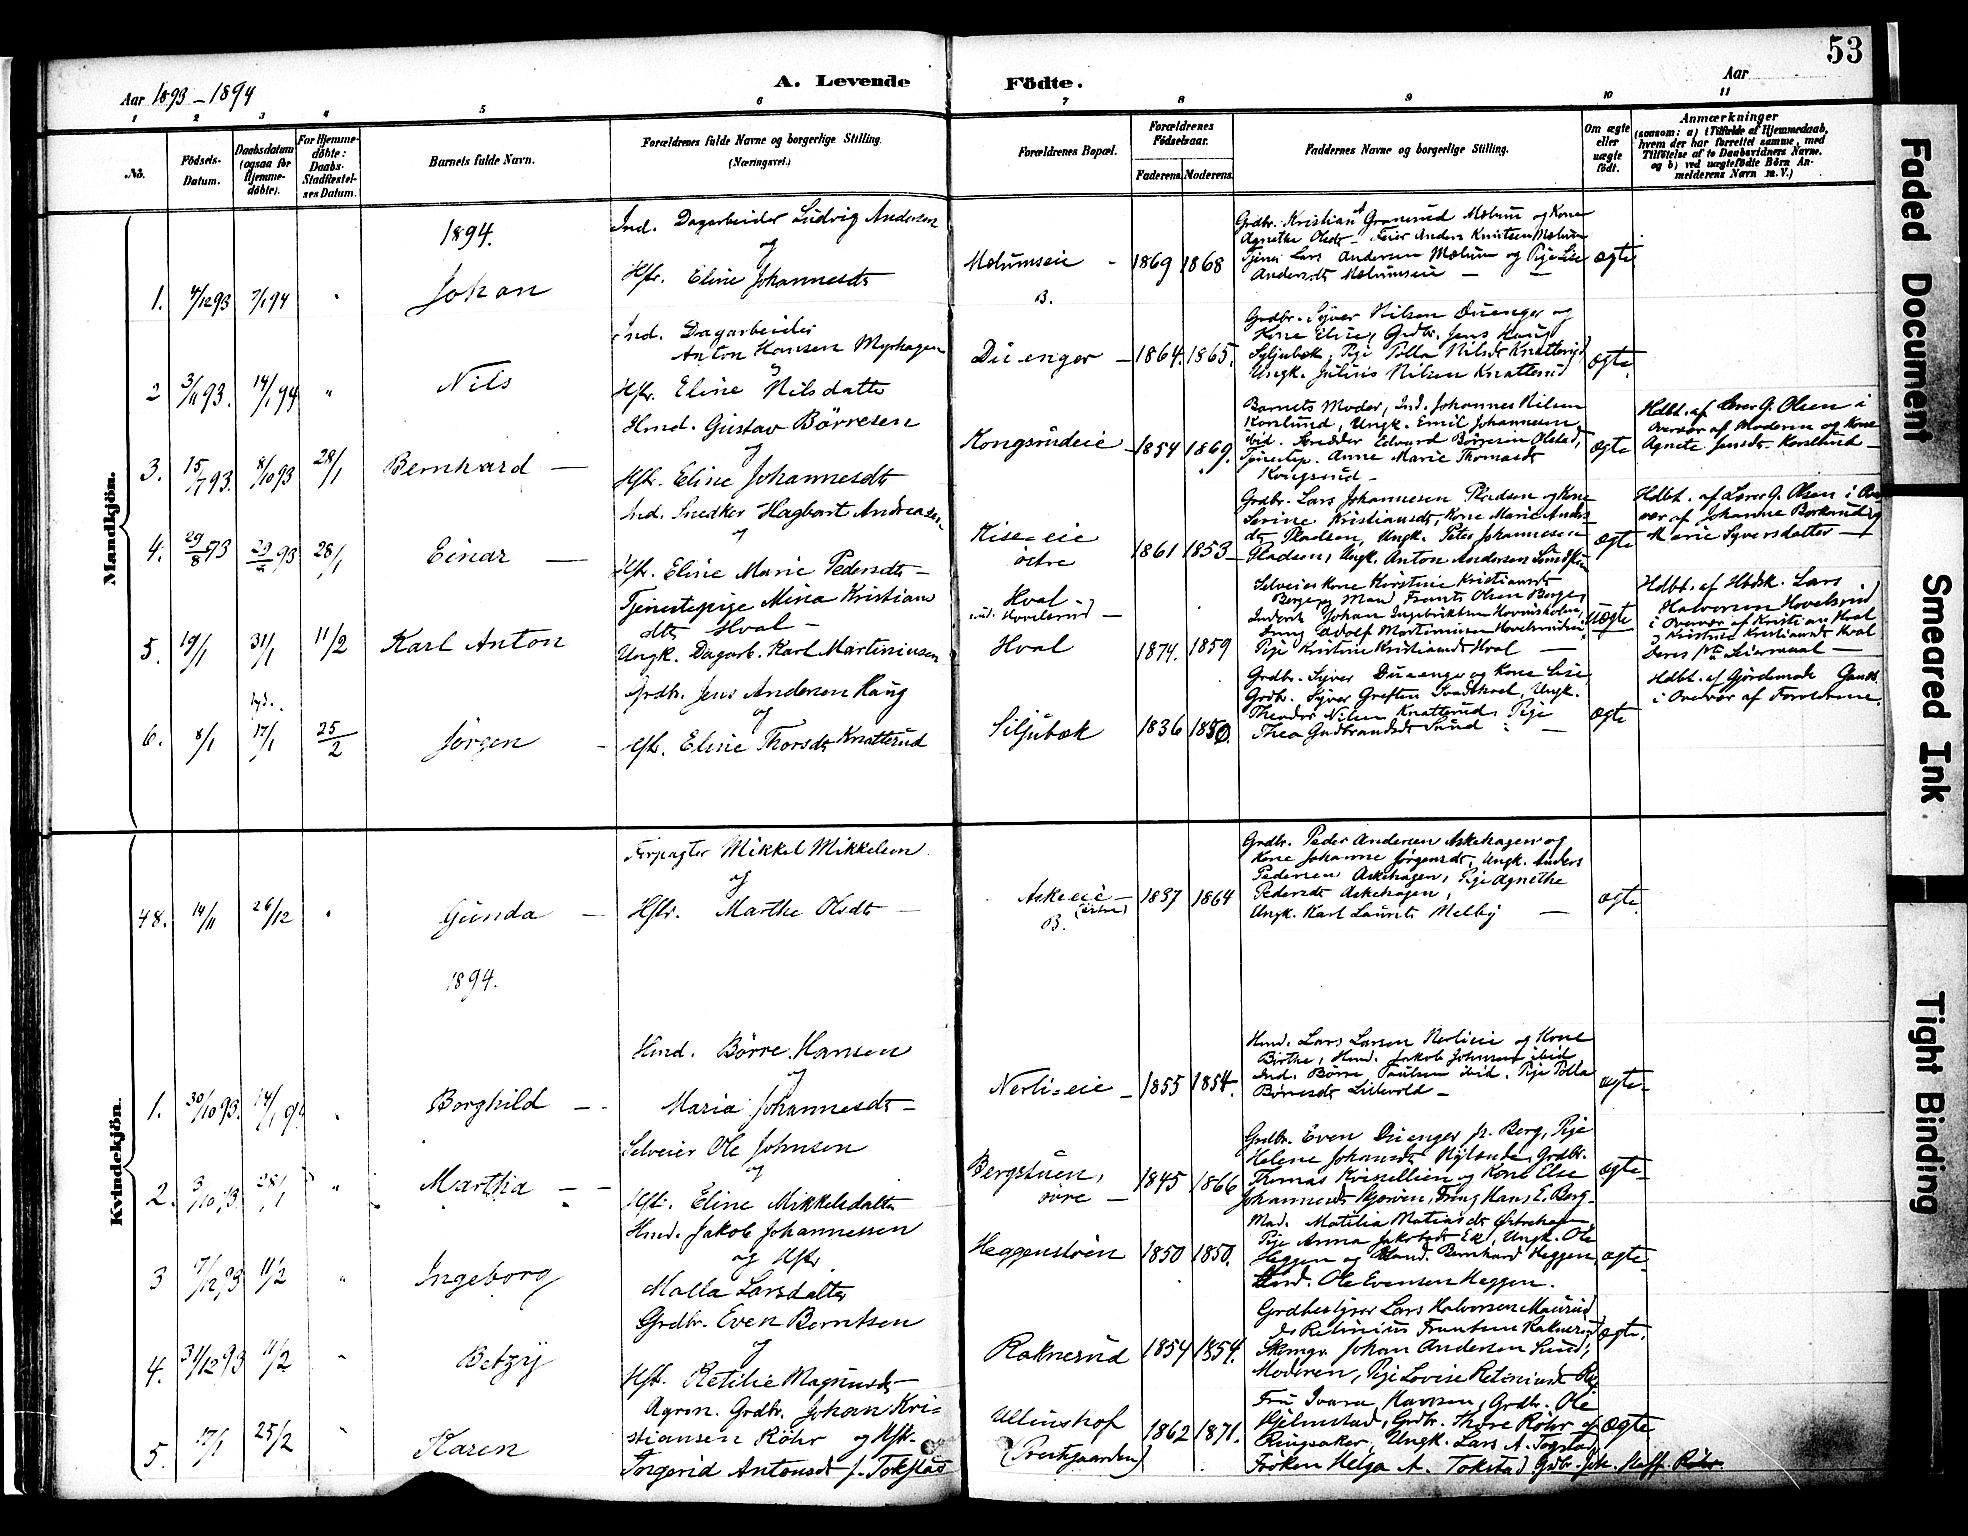 53
Aar 1893-1894
A. Levende Födte.
Aar
1 2 3 4 5 6 7 8 9 10 11
No.
Födsels-Datum.
Daabsdatum (ogsaa for Hjemmedöbte).
For Hjemmedöbte: Daabs-Stadfæstelses Datum.
Barnets fulde Navn.
Forældrenes fulde Navne og borgerlige Stilling. (Næringsvei.)
Forældrenes Bopæl.
Forældrenes Födselsaar.
Faderens. Moderens.
Faddernes Navne og borgerlige Stilling.
Om ægte eller uægte födt.
Anmærkninger
(saasom: a) i Tilfælde af Hjemmedaab, hvem der har forrettet samme, med Tilföielse af to Daabsvidners Navne, og b) ved uægtefödte Börn Anmelderens Navn m. V.)
Mandkjön.
1894.
1. 4/12 93 7/1 94 " Johan
Ind. Dagarbeider Ludvig Andersen
og
Hstr. Eline Johannesdtr
Mælumseie
B.
1869 1868
Grdbr. Kristian A Gransrud Mælum og Kone
Agnethe Olsdtr - Feier Anders Knutsen Mælum
Tjener Lars Andersen Mælum og Pige Lise
Andersdtr Mælumseie
ægte
2 3/11 93. 14/1 94 " Nils
Ind. Dagarbeider
Anton Hansen Myrhagen
og
Hstr. Eline Nilsdatter
Duenger
1864. 1865.
Grdbr. Syver Nilsen Duenger og
Kone Eline, Grdbr. Jens Haug
Syljubæk, Pige Tolla Nilsdtr Knatterud
Ungk. Julius Nilsen Knatterud
ægte
3. 15/7 93. 8/10 93 28/1 Bernhard
Hmd. Gustav Börresen
og
Hstr. Eline Johannesdtr
Kongsrudeie
1854 1869.
Barnets Moder, Ind. Johannes Nilsen
Korslund, Ungk. Emil Johannesen
ibid. Snedker Edvard Börresen Olstad,
Tjenestep. Anne Marie Thomasdtr
Kongsrud
ægte
Hdbt. af Lærer G. Olsen i
Overvær af Moderen og Kone
Agnete Jensdtr Korslund
4. 29/8 93 29/ 93 28/1 Einar
Ind. Snedker Hagbart Andreasen
og
Hstr. Eline Marie Pedersdtr
Kise-eie
östre
1861 1853
Grdbr. Lars Johannesen Pladsen og Kone
Serine Kristiansdtr, Kone Marie Anders-
dtr Pladsen, Ungk. Peter Johannesen
Pladsen, Ungk. Anton Andersen
ægte
Hdbt. af Lærer G. Olsen i Over
vær af Johanne Borkerud og
Marie Syversdatter
5. 19/1 31/1 11/2 Karl Anton
Tjenestepige Mina Kristians
dtr Hval
Ungk. Dagarb. Karl Martiniusen
Hval
ind. Hovelsrud
Hval
1874. 1859
Selveierkone Kirstine Kristiansdtr
Berger, Mand Frants Olsen Berger,
Inderst Johan Ingebriktsen Hovinsholm,
Ung Adolf Martiniusen Hovelsrudeie
Pige Kristine Kristiansdtr Hval
uægte
Hdbt. af Hdsk. Lars
Halvorsen Hovelsrud
i Overvær af Kristian Hval
og Kristine Kristiansdtr Hval
Deres 1ste Leiermaal
6. 8/1 17/1 25/2 Jörgen
Grdbr. Jens Andersen Haug
og
Hstr. Eline Thorsdtr Knatterud
Siljubæk
1836 1850.
Grdbr. Syver Duenger og Kone Lise
Grdbr. Syver Greften Ungk.
Theodor Nilsen Knatterud, Pige
Thea Gudbrandsdtr Sund
ægte
Hdbt. af Gjordemoder
i Overvær af Forældrene
Kvindekjön.
48. 14/11 26/12 " Gunda
Forpagter Mikkel Mikkelsen
og
Hstr. Marthe Olsdtr
Askeeie
(östre)
B.
1837 1864
Grdbr. Peder Andersen Askehagen og
Kone Johanne Jörgensdtr, Ungk. Anders
Pedersen Askehagen, Pige Agnethe
Pedersdtr Askehagen,
Ungk. Karl Laurits Melby
ægte
1894.
1. 30/10 93. 14/1 94 " Borghild
Hmd. Börre Hansen
og
Maria Johannesdtr
Nerli-eie
1855 1854.
Hmd. Lars Larsen Nerlieie og Kone
Birthe, Hmd. Jakob Johnsen ibid
Ind. Börre Paulsen ibid. Pige Tolla
Börresdtr Lillevold
ægte
2. 3/10 93 28/1 " Marthia
Selveier Ole Johnsen
og
Hstr. Eline Mikkelsdatter
Bergstuen,
övre
1845 1866
Grdbr. Even Duenger p. Berg, Pige
Helene Johansdtr Nylænde, Grdbr.
Thomas Kvisellien og Kone Else
Johannesdtr Gjörven, Dreng Hans E. Berg
ægte
3 17/12 93 11/2 " Ingeborg
Hmd. Jakob Johannessen
og Hstr
Malla Larsdatter
Heggenstöen
1850 1850.
Mad. Matilia Matiasdtr
Pige Anna Jakobsdtr Ek, Ungk. Ole
Heggen og Hmd. Bernhard Heggen
Hmd. Ole Evensen Heggen.
ægte
4. 31/12 93 11/2 " Betzy
Grdbr. Even Berntsen
og
Hstr. Retilie Magnusdtr
Raknerud
1854 1854.
Grdbestyrer Lars Halvorsen Maurud
Retinius Frantsen Raknerud
Skomgr. Johan Andersen Sund,
Moderen, Pige Lovise Retiniusdtr
ægte.
5. 17/1 25/2 " Karen
Agron. Grdbr. Johan Kri-
stiansen Röhr og Hstr.
Ingerid Antonsdtr f. Tokstad
Ullinshof
(Prestgaarden)
1862 1871.
Fru Ivara Havsen, Grdbr. Ole
Hjelmstad, Grdbr. Thore Röhr af
Ringsaker, Ungk. Lars A. Tokstad
Fröken Helga A. Tokstad Grdbr.
ægte
Faded Document
Smeared Ink
Tight Binding